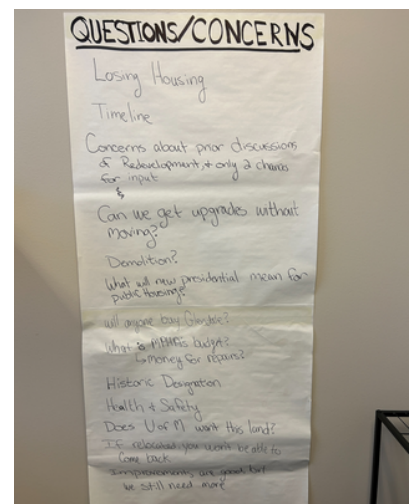 QUESTIONS/CONCERNS
Losing Housing
Timeline
Concerns about prior discussions
of Redevelopment, + only 2 chances
for input
Can we get upgrades without
moving?
Demolition?
What will new presidential mean for
public Housing?
will anyone buy Glendale?
What is MPHA's budget?
↳ money for repairs?
Historic Designation
Health + Safety
Does U of M want this land?
If relocated you won't be able to
come back
Improvements are good, but
we still need more